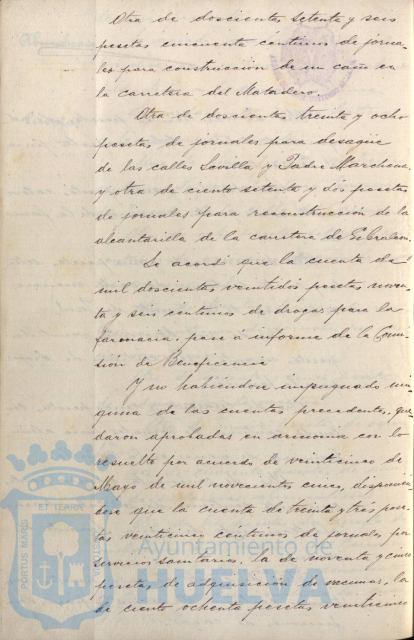 Otra de doscientas setenta y seis
pesetas cincuenta centimos de jorna-
les para construcción de un caño en
la carretera del Matadero.
Otra de doscientas treinta y ocho
pesetas de jornales para desagüe
de las calles Sevilla y Padre Marchena,
y otra de ciento setenta y dós pesetas
de jornales para reconstrucción de la
alcantarilla de la carretera de Gibraleon.
Se acordó que la cuenta de
mil doscientas veintidos pesetas noven-
ta y seis centimos de drogas para la
farmacia, pase á informe de la Comi-
sión de Beneficencia
Y no habiendose impugnado nin-
guna de las cuentas precedentes, que-
daron aprobadas en armonia con lo
resuelto por acuerdo de veinticinco de
Mayo de mil novecientos cinco, disponien-
dose que la cuenta de treinta y tres pese-
tas veinticinco centimos de jornales por
servicios sanitarios, la de noventa y cinco
pesetas de adquisición de vacunas, la
de ciento ochenta pesetas veinticinco
PORTUS MARIS
ET TERRÆ
CUSTODIA
Ayuntamiento de
HUELVA